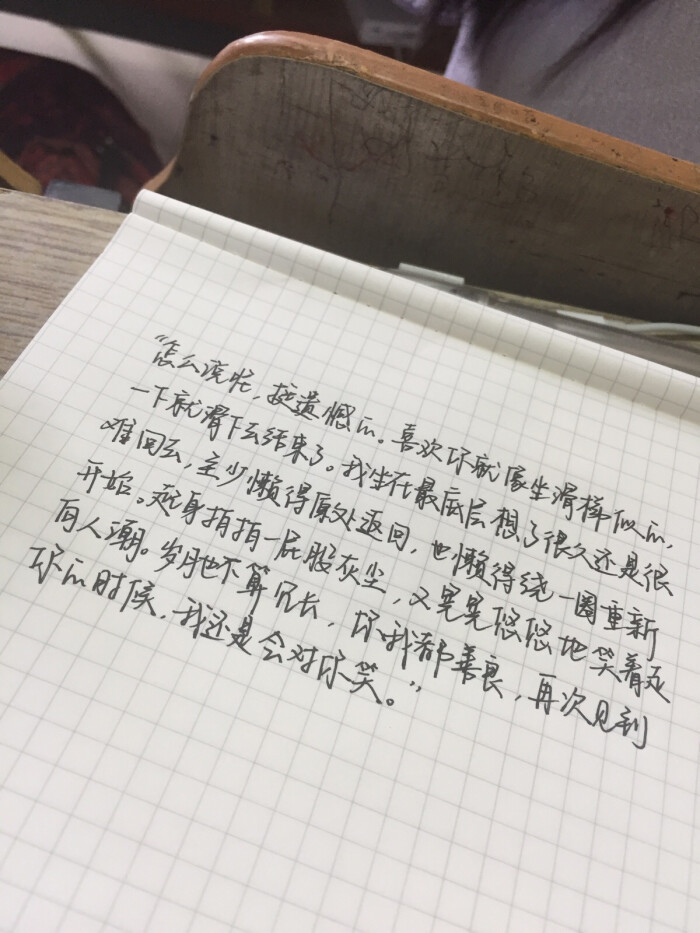 “怎么说呢,挺遗憾的。喜欢你就像坐滑梯似的,
一下就滑下去结束了。我坐在最底层想了很久还是很
难回去,至少懒得原处返回,也懒得绕一圈重新
开始。起身拍拍一屁股灰尘,又晃晃悠悠地笑着走
向人潮。岁月也不算冗长,你我都善良,再次见到
你的时候,我还是会对你笑。”